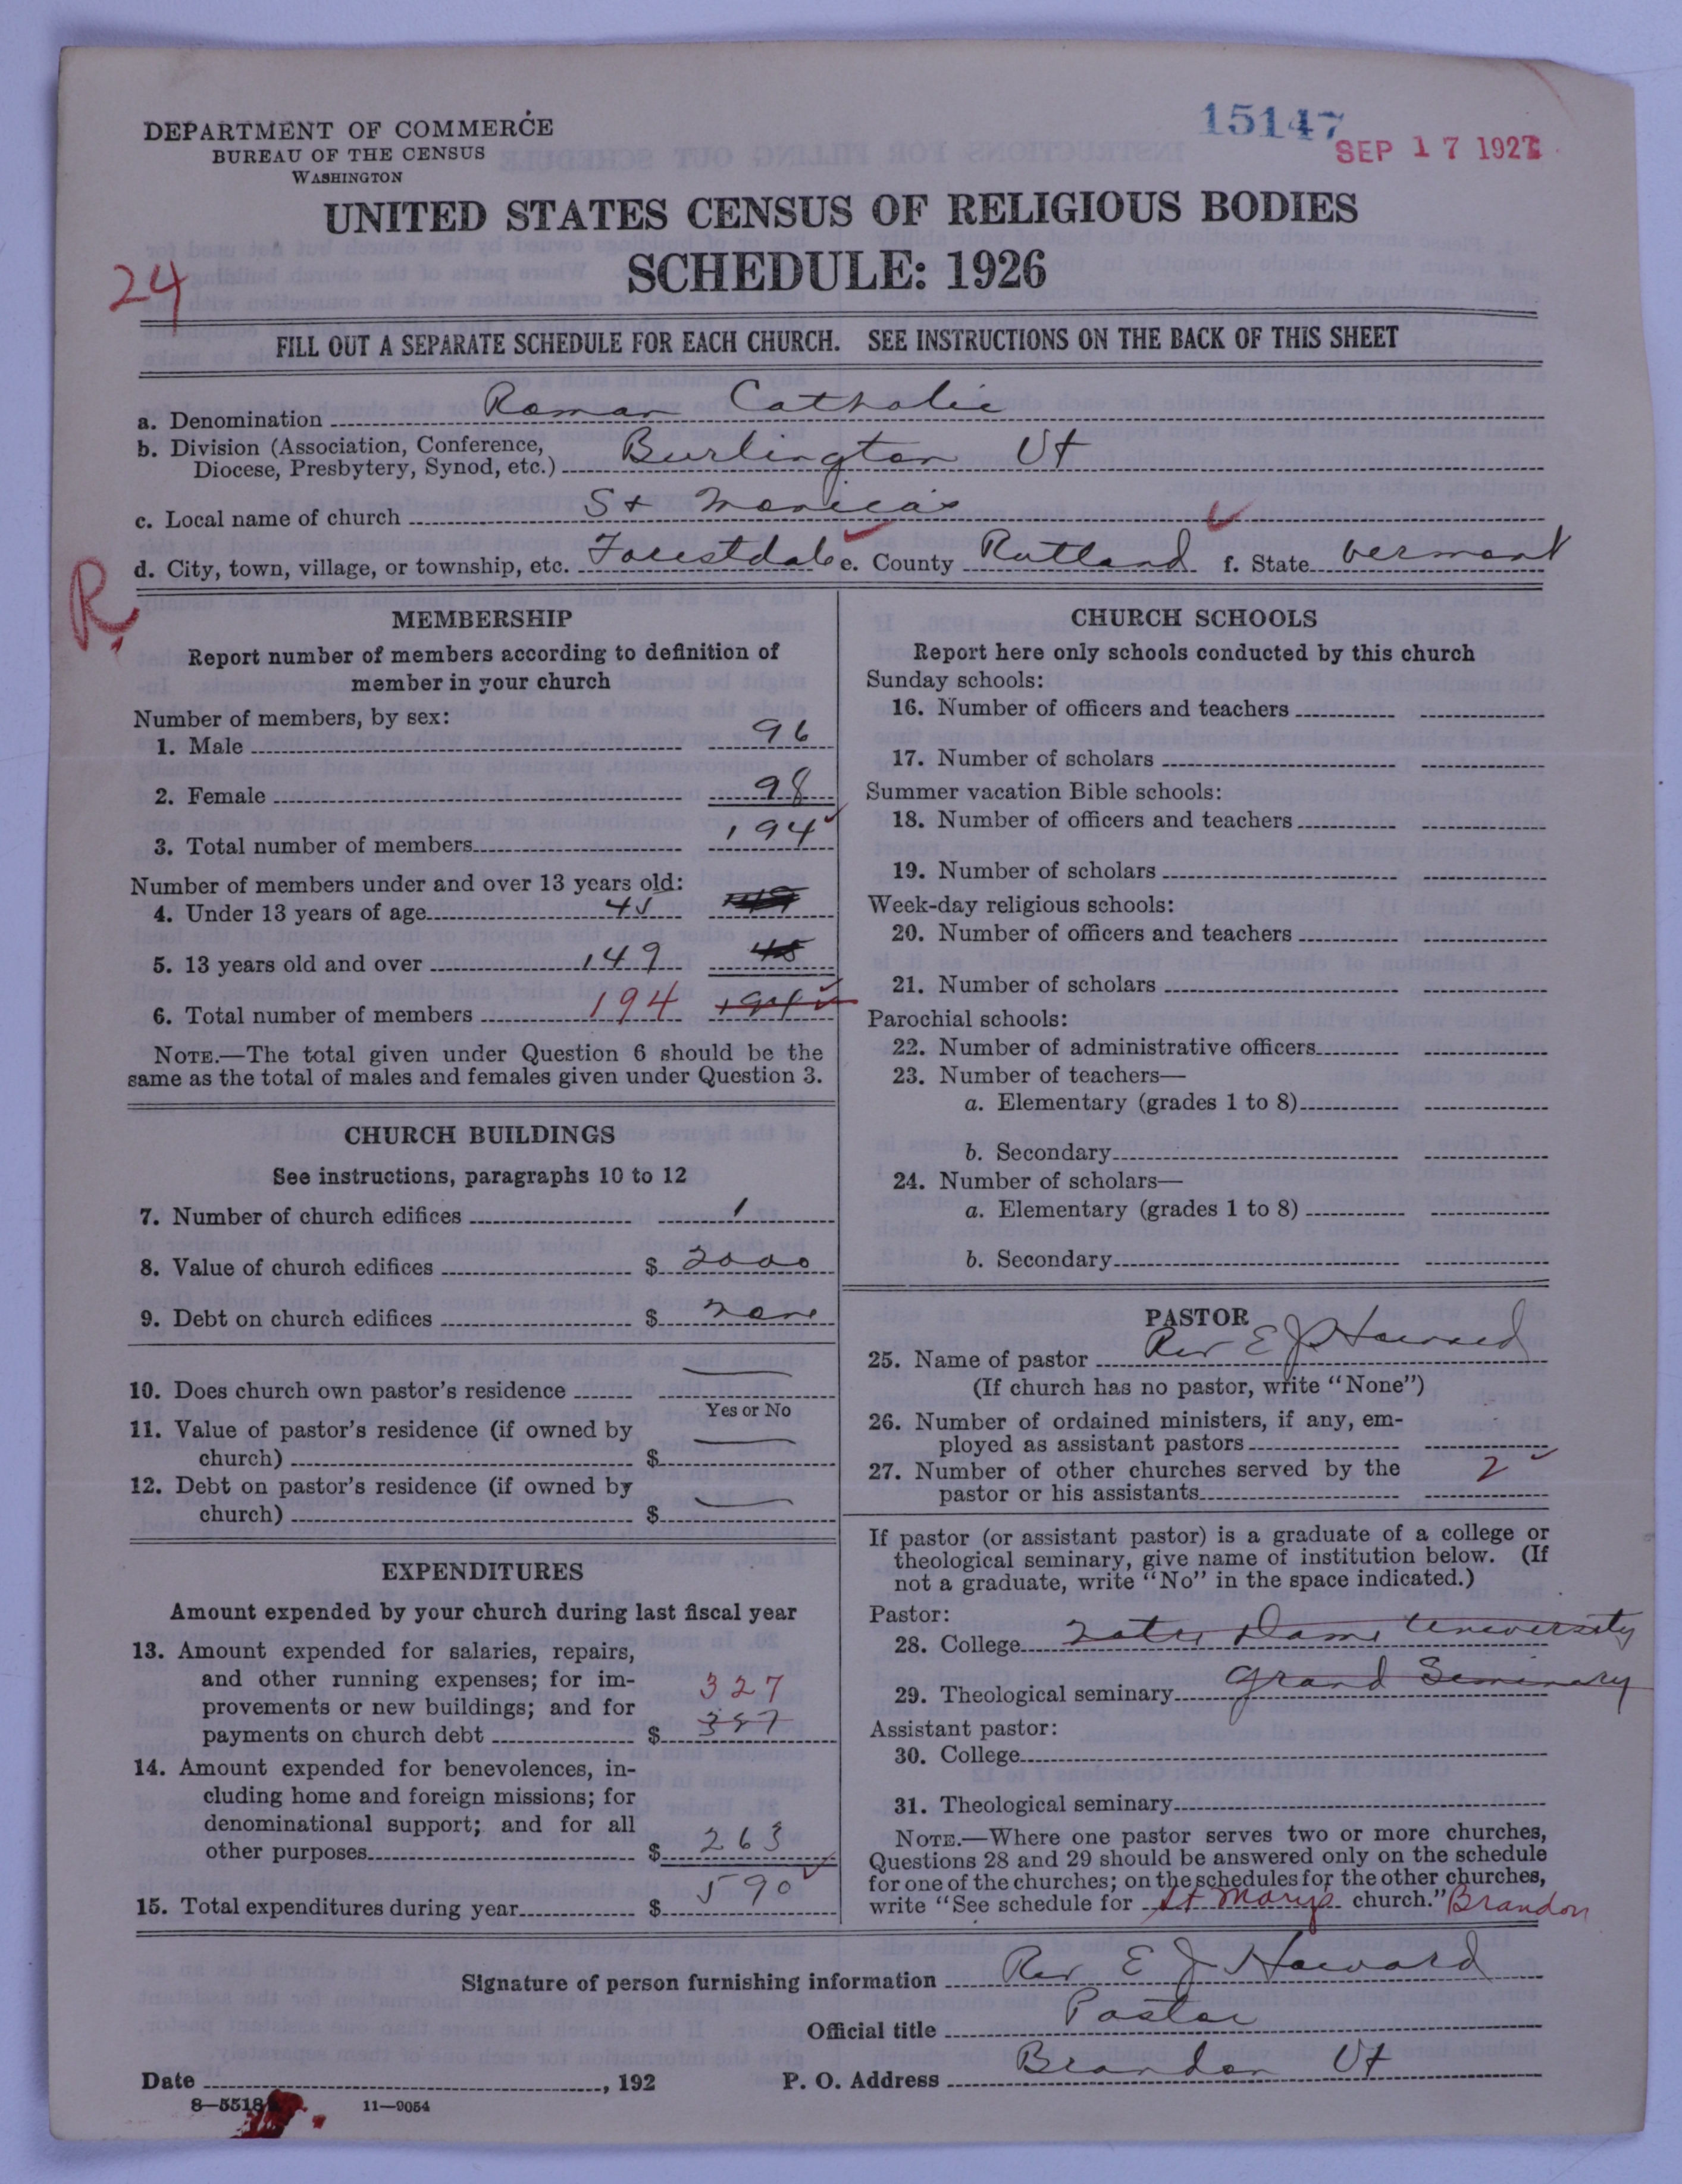 15147
SEP 17 1927
DEPARTMENT OF COMMERCE
BUREAU OF THE CENSUS
WASHINGTON
UNITED STATES CENSUS OF RELIGIOUS BODIES
SCHEDULE: 1926
24
FILL OUT A SEPARATE SCHEDULE FOR EACH CHURCH. SEE INSTRUCTIONS ON THE BACK OF THIS SHEET
a. Denomination Roman Catholic
b. Division (Association, Conference,
Diocese, Presbytery, Synod, etc.) Burlington Vt
c. Local name of church St Monica's
d. City, town, village, or township, etc. Forestdale e. County Rutland f. State Vermont
R.
MEMBERSHIP
Report number of members according to definition of
member in your church
Number of members, by sex:
1. Male 96
2. Female 98
3. Total number of members 194
Number of members under and over 13 years old:
4. Under 13 years of age 45
5. 13 years old and over 149 45
6. Total number of members 194 194
NOTE.—The total given under Question 6 should be the
same as the total of males and females given under Question 3.
CHURCH BUILDINGS
See instructions, paragraphs 10 to 12
7. Number of church edifices 1
8. Value of church edifices $ 2000
9. Debt on church edifices $ none
10. Does church own pastor's residence
Yes or No
11. Value of pastor's residence (if owned by
church) $
12. Debt on pastor's residence (if owned by
church) $
EXPENDITURES
Amount expended by your church during last fiscal year
13. Amount expended for salaries, repairs,
and other running expenses; for im-
provements or new buildings; and for 327
payments on church debt $
14. Amount expended for benevolences, in-
cluding home and foreign missions; for
denominational support; and for all
other purposes $ 263
15. Total expenditures during year $ 590
CHURCH SCHOOLS
Report here only schools conducted by this church
Sunday schools:
16. Number of officers and teachers
17. Number of scholars
Summer vacation Bible schools:
18. Number of officers and teachers
19. Number of scholars
Week-day religious schools:
20. Number of officers and teachers
21. Number of scholars
Parochial schools:
22. Number of administrative officers
23. Number of teachers—
a. Elementary (grades 1 to 8)
b. Secondary
24. Number of scholars—
a. Elementary (grades 1 to 8)
b. Secondary
PASTOR
25. Name of pastor Rev E J Howard
(If church has no pastor, write "None")
26. Number of ordained ministers, if any, em-
ployed as assistant pastors
27. Number of other churches served by the 2
pastor or his assistants
If pastor (or assistant pastor) is a graduate of a college or
theological seminary, give name of institution below. (If
not a graduate, write "No" in the space indicated.)
Pastor:
28. College Notre Dame University
29. Theological seminary Grand Seminary
Assistant pastor:
30. College
31. Theological seminary
NOTE.—Where one pastor serves two or more churches,
Questions 28 and 29 should be answered only on the schedule
for one of the churches; on the schedules for the other churches,
write "See schedule for St Marys church." Brandon
Signature of person furnishing information Rev E J Howard
Official title Pastor
Date , 192 P. O. Address Brandon Vt
8—5518 11—9054